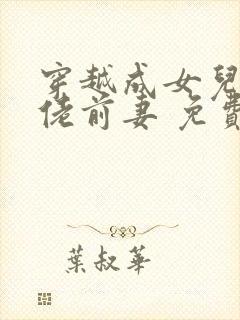 穿越成女兒
佬前妻 免費
葉叔華